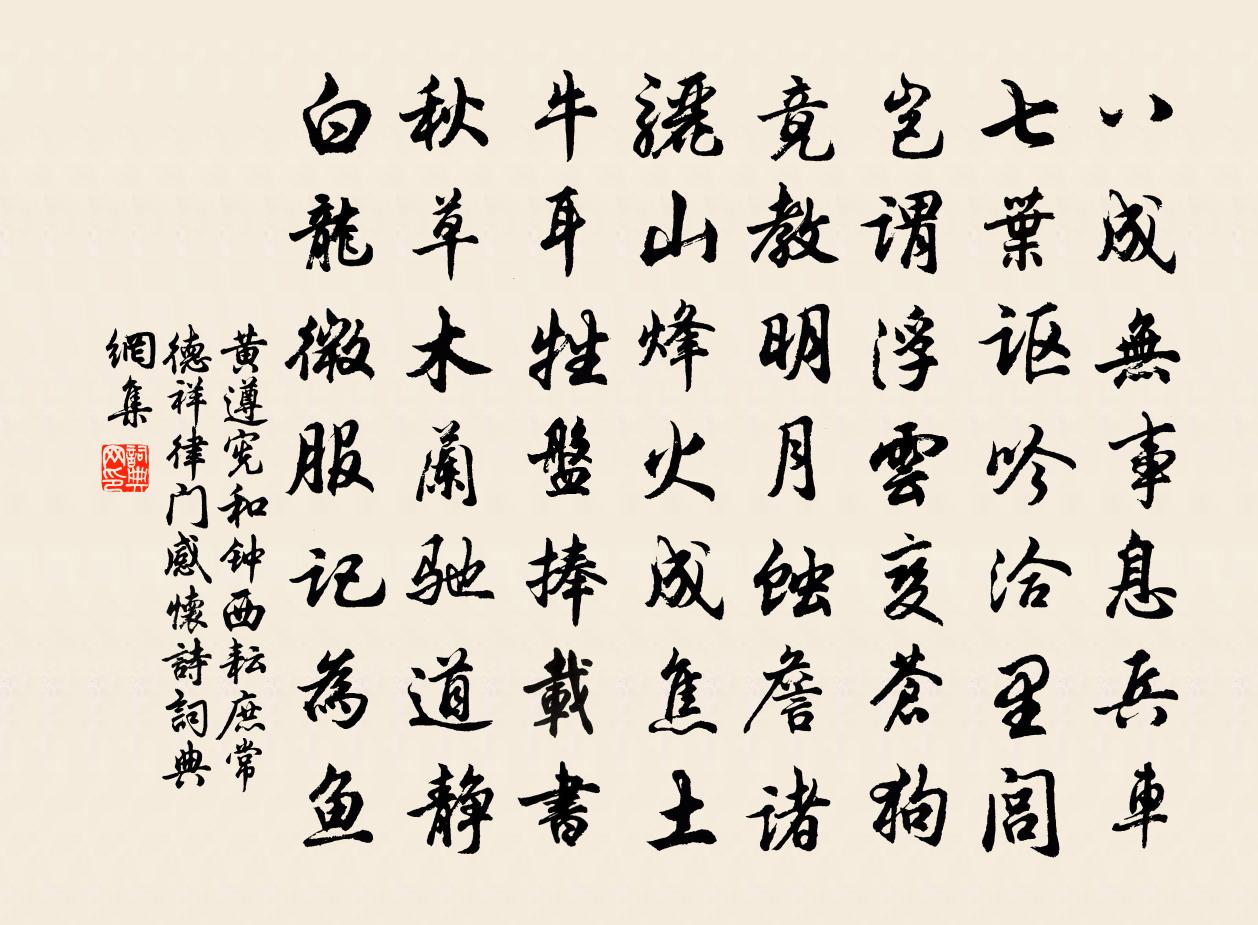 八成無事息兵車
七葉讴吟洽里閭
豈謂浮雲变蒼狗
竟教明月蝕詹诸
驪山烽火成焦土
牛耳牲盤捧載書
秋草木蘭驰道靜
白龍微服记為鱼
黄遵宪和钟西耘庶常
德祥律门感懷詩詞典
網集
詞典网印